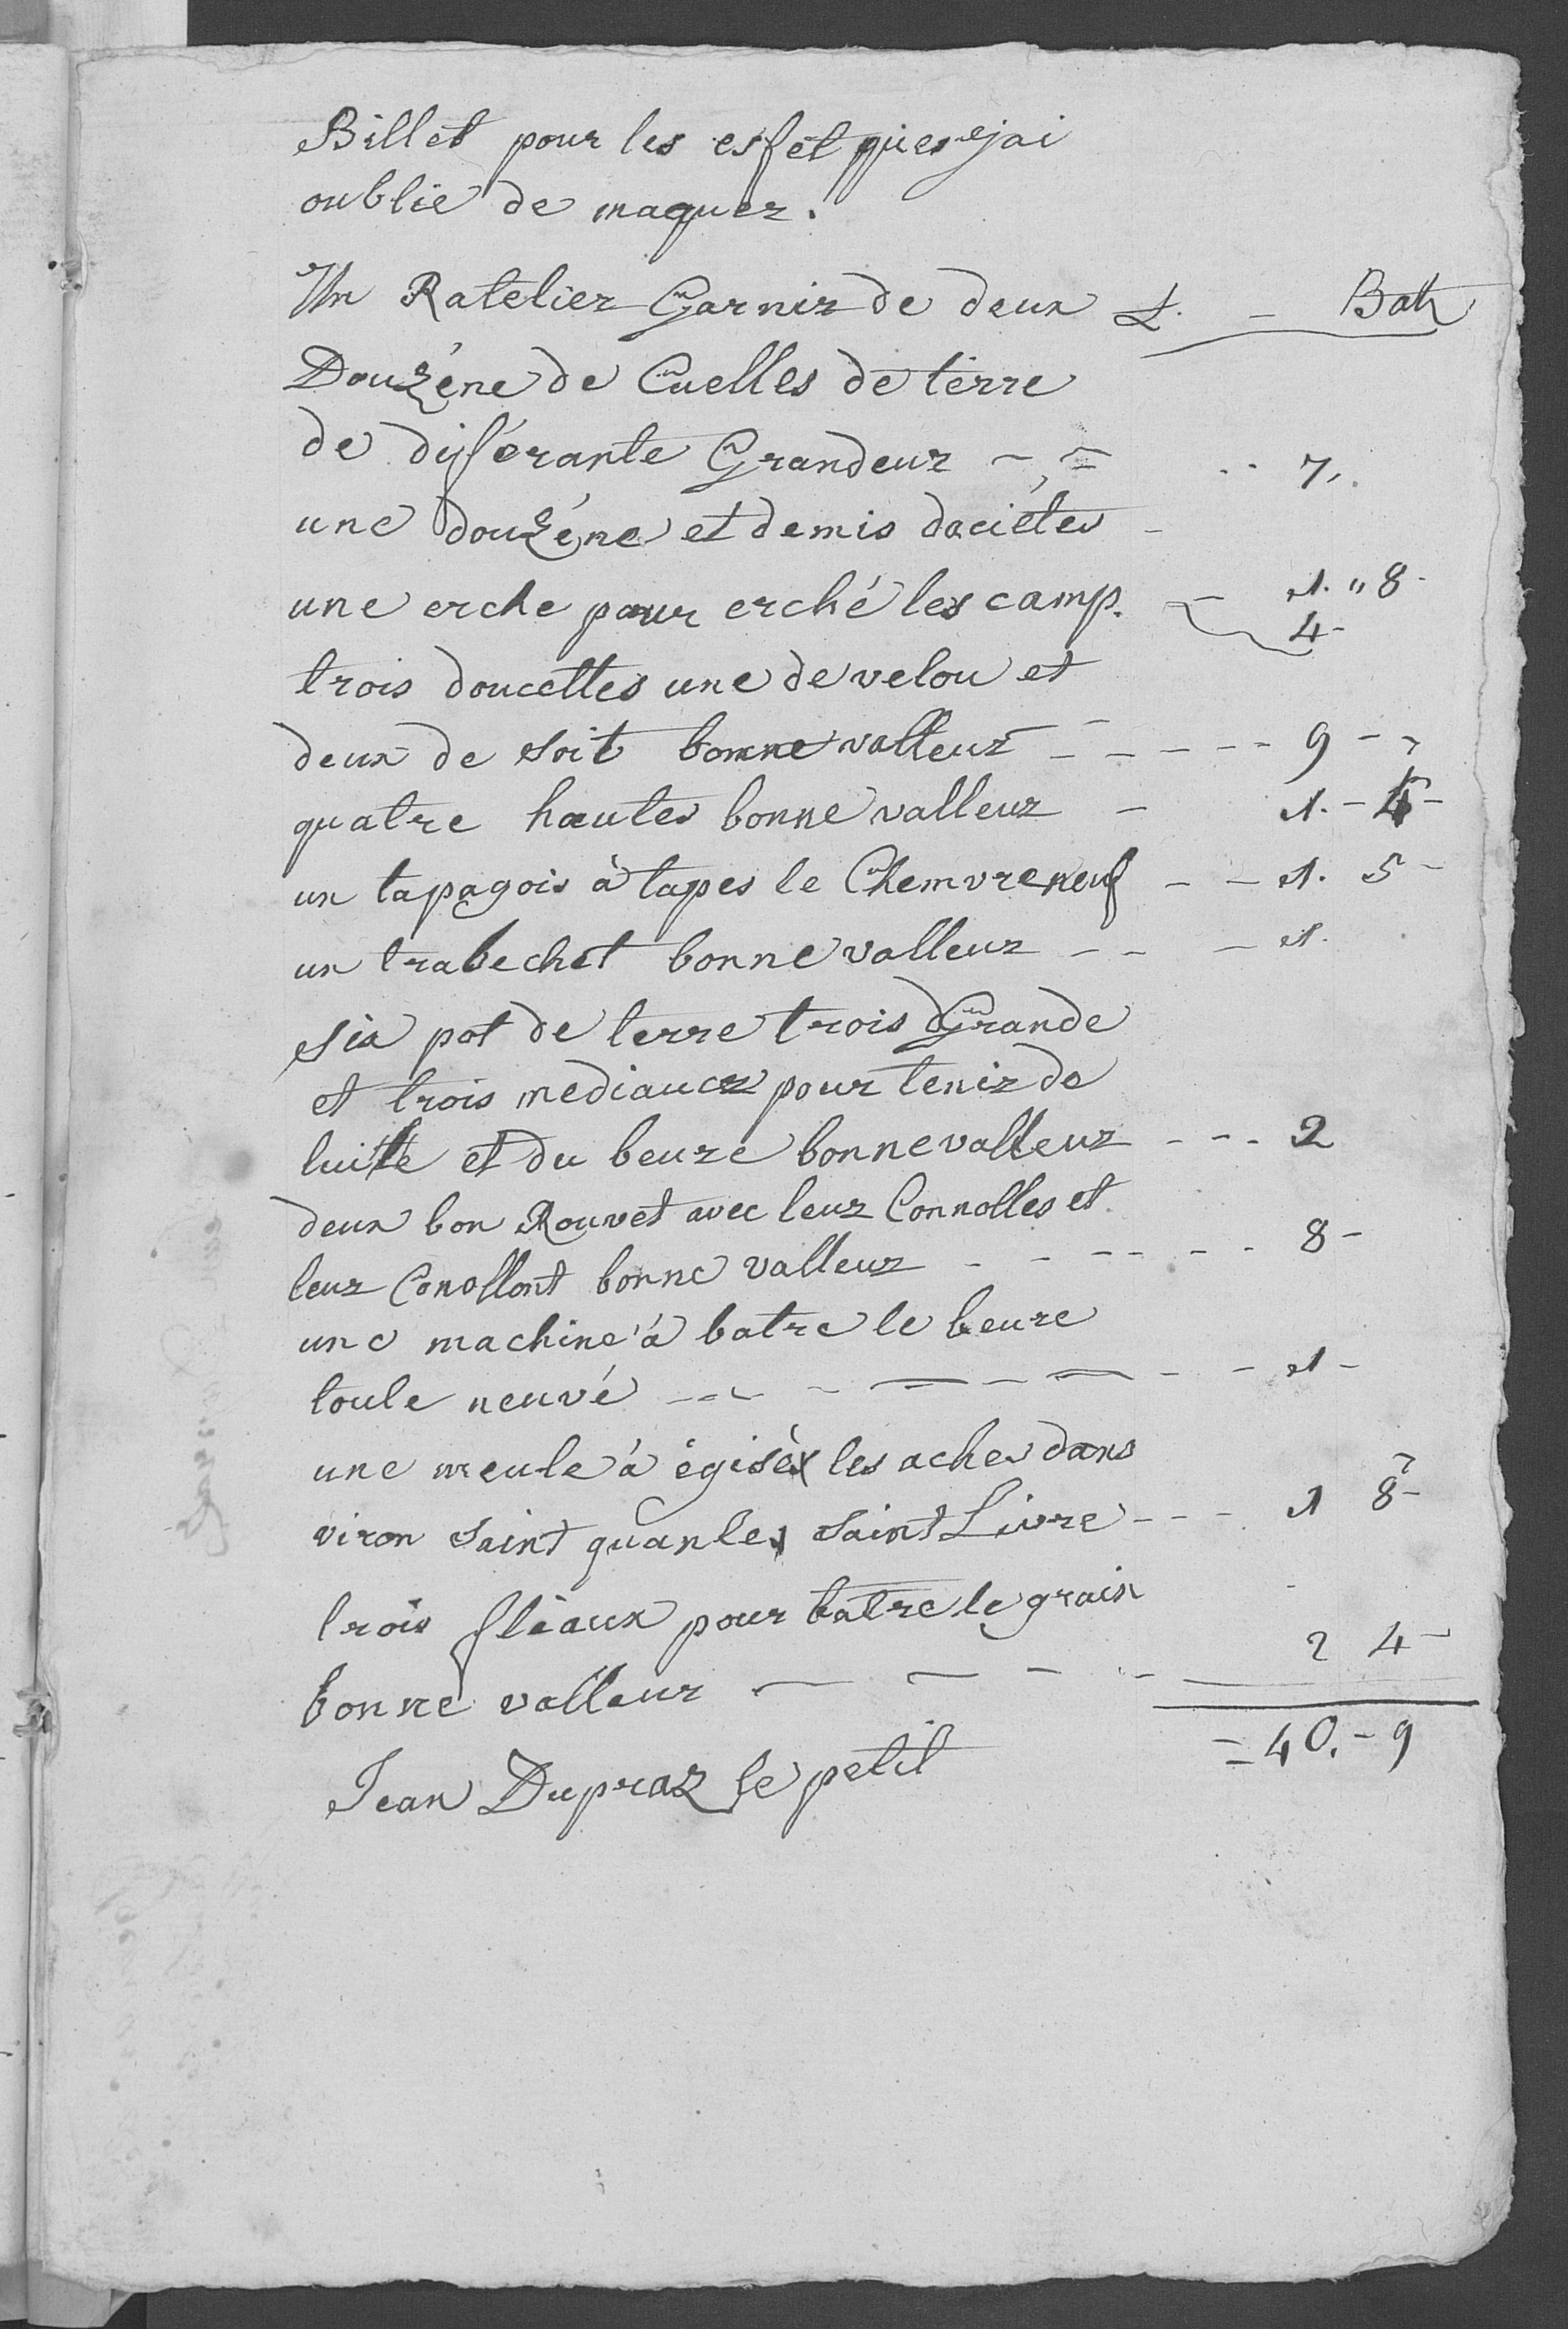 Billet pour les esfet que jai
oublie de maquer.
Un Ratelier Garnir de deux L. - Batz
Douzéne de Cuelles de terre
de diférante Grandeur - = .. 7.
une douzéne et demis daciétes -
une erche pour erché les camp. - 1. " 8 -
4 -
trois doucettes une de velou et
deux de soit bonne valleur - - - - - 9 - -
quatre hautes bonne valleur - 1. - 4 -
un tapagois à tapes le Chemvre neuf - - 1. 5 -
un trabechet bonne valleur - - - 1.
six pot de terre trois Grande
et trois mediaucr pour tenir de
luille et du beure bonne valleur - - - 2
deux bon Rouvet avec leur Connolles et
leur Conollont bonne valleur - - - - - - 8 -
une machine à batre le beure
toute neuvé - - - - - - - - 1 -
une meule à égisér les aches dans
viron saint quante saint Livre - - - 1 8 -
trois fléaux pour batre le grain
bonne valleur - - - - 2 4 -
= 40. - 9
Jean Dupraz le petit